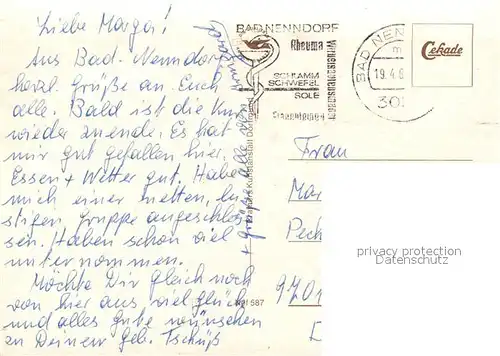 Liebe Marga!
Aus Bad-Nenndorf
herzl. Grüße an. Euch
alle. Bald ist die Kur
wieder zuende. Es hat
mir gut gefallen hier.
Essen + Wetter gut. Habe
mich einer netten, lu-
stigen Gruppe angeschlos-
sen. Haben schon viel
unternommen.
Möchte Dir gleich noch
von hier aus viel Glück
und alles Gute wünschen
zu Deinem Geb. Tschüß
+ grüße alle
BAD NENNDORF
Rheuma
Wirbelsäulenschäden
SCHLAMM
SCHWEFEL
SOLE
Frauenleiden
BAD NEN
19.4.8
305
Cekade
Frau
Mar
Pech
8701
587
privacy protection
Datenschutz